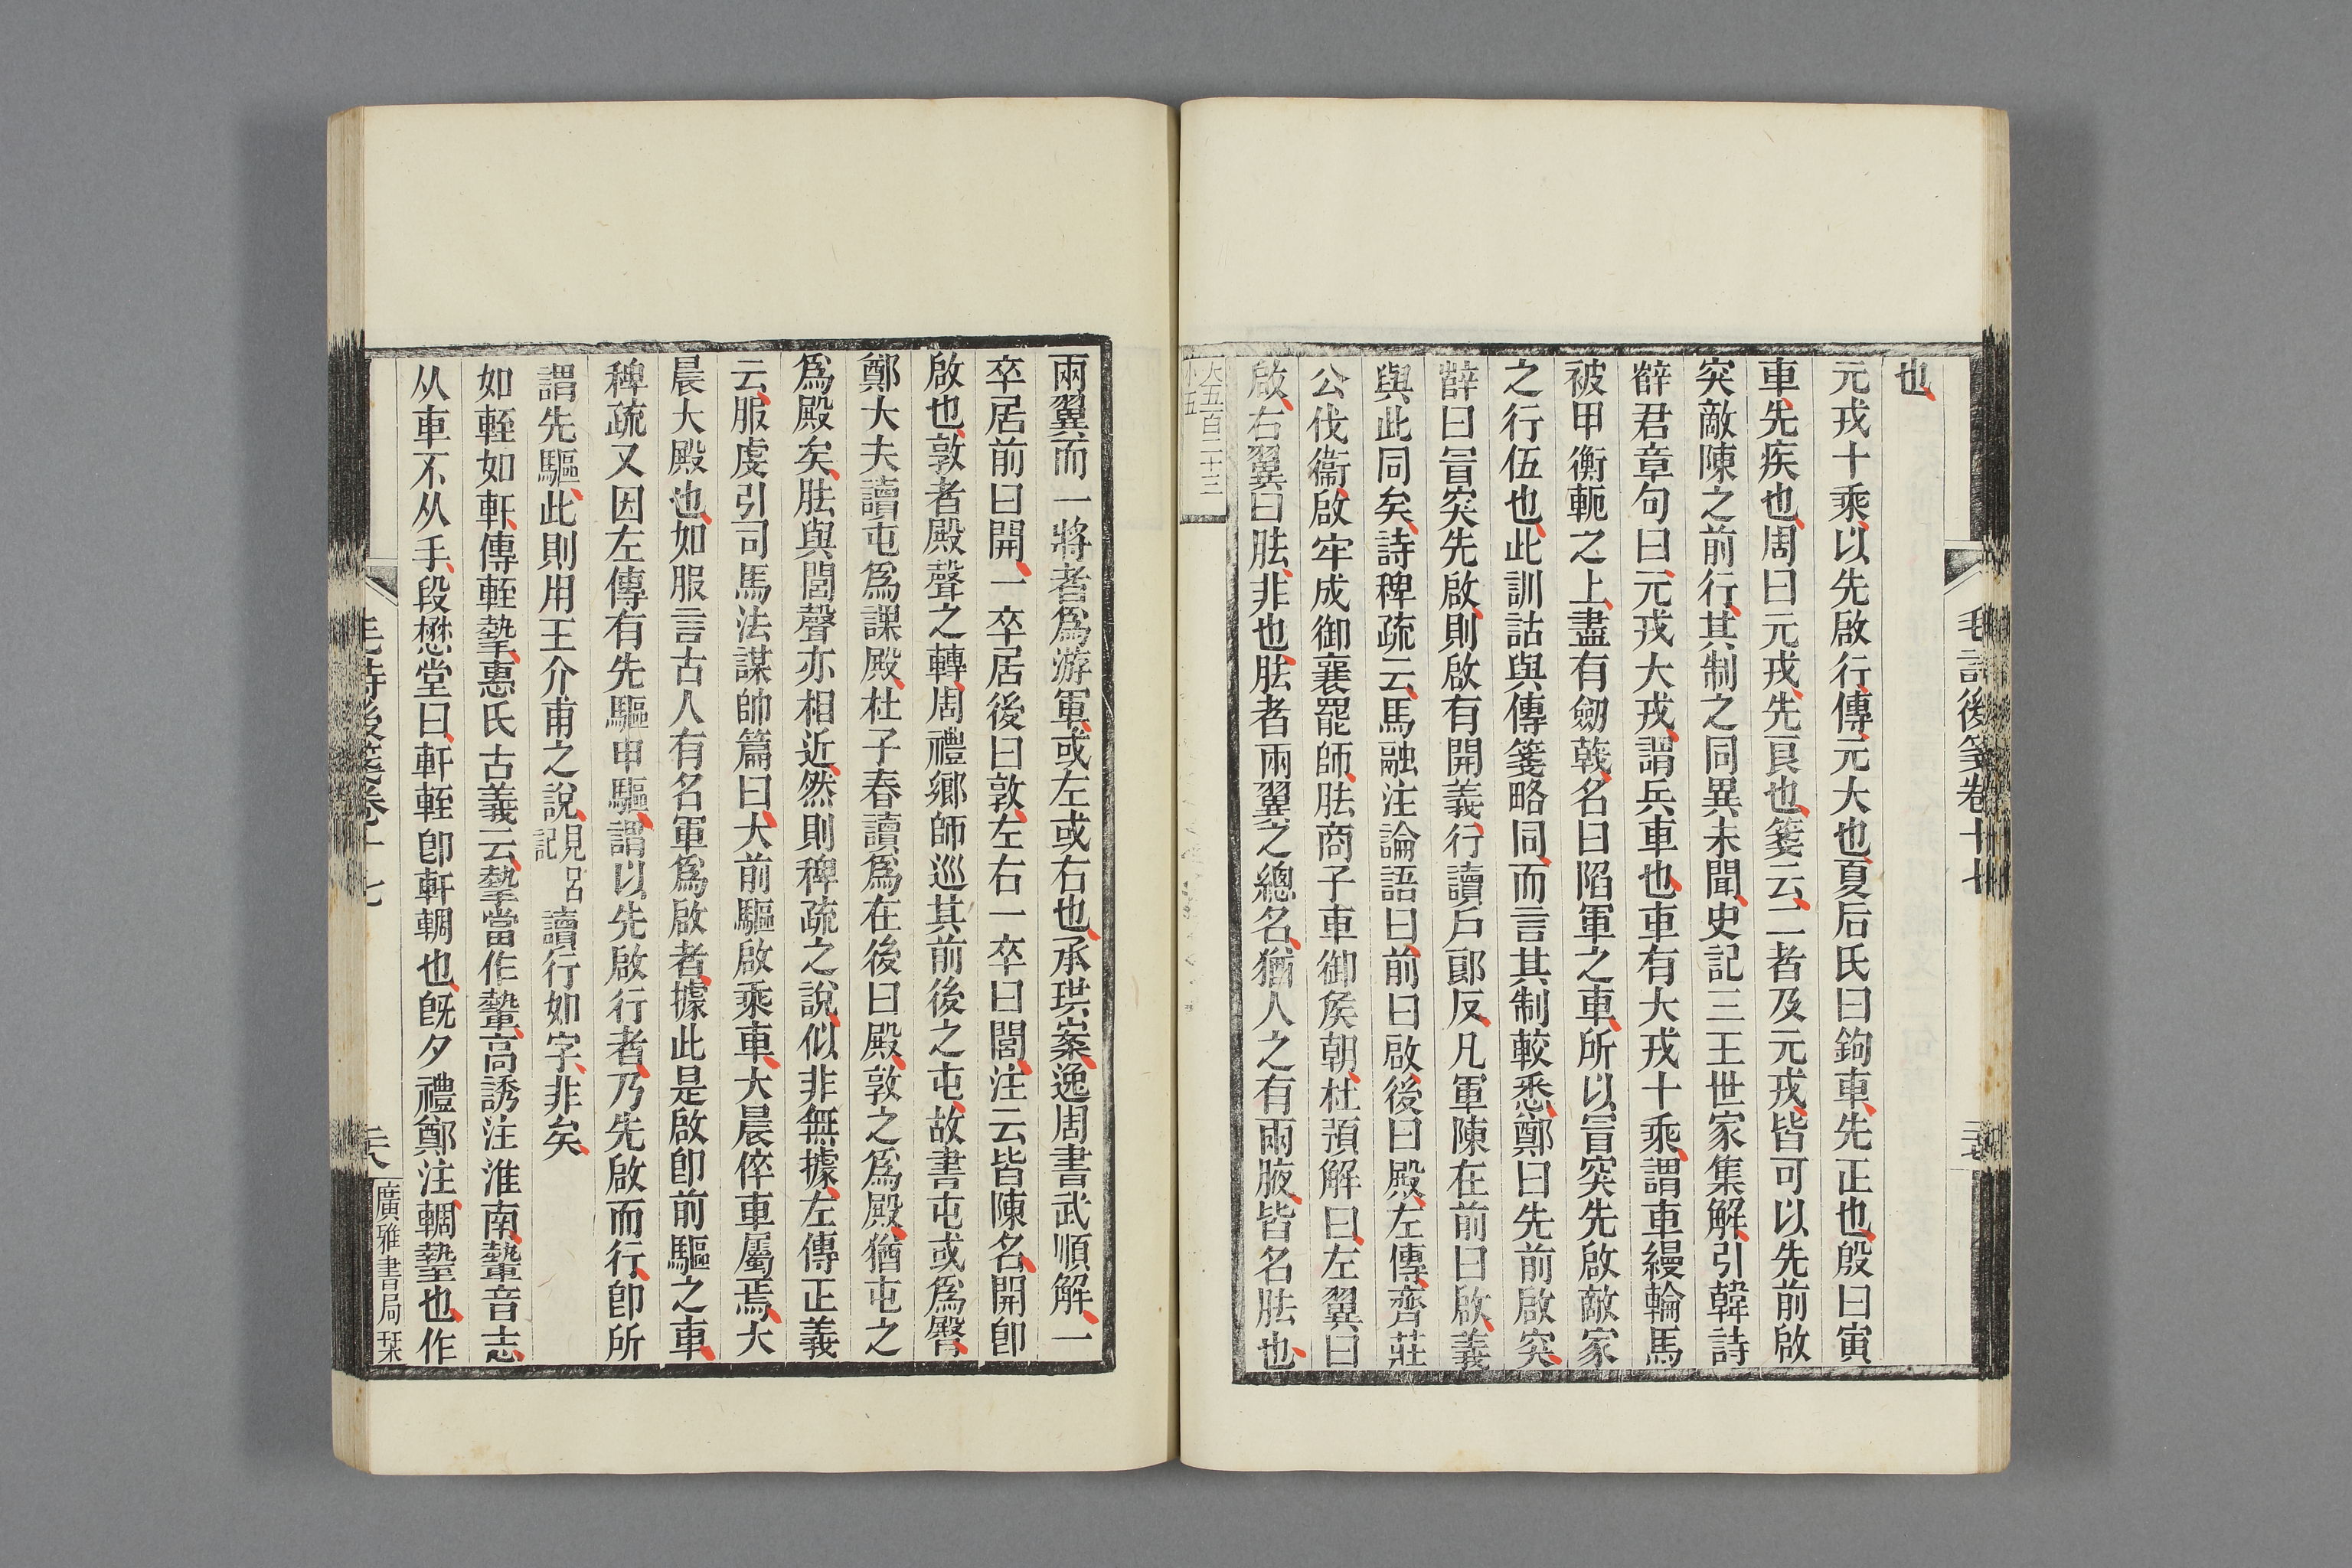 毛詩後箋卷十七
也
元戎十乘以先啟行傳元大也夏后氏曰鉤車先正也殷曰寅
車先疾也周曰元戎先良也箋云二者及元戎皆可以先前啟
突敵陳之前行其制之同異未聞史記三王世家集解引韓詩
薛君章句曰元戎大戎謂兵車也車有大戎十乘謂車縵輪馬
被甲衡軛之上盡有劒戟名曰陷軍之車所以冒突先啟敵家
之行伍也此訓詁與傳箋略同而言其制較悉鄭曰先前啟突
薛曰冒突先啟則啟有開義行讀戶郞反凡軍陳在前曰啟義
與此同矣詩稗疏云馬融注論語曰前曰啟後曰殿左傳齊莊
公伐衞啟牢成御襄罷師胠商子車御矦朝杜預解曰左翼曰
啟右翼曰胠非也胠者兩翼之總名猶人之有兩腋皆名胠也
大五百二十三
小五
兩翼而一將者爲游軍或左或右也承珙案逸周書武順解一
卒居前曰開一卒居後曰敦左右一卒曰閭注云皆陳名開卽
啟也敦者殿聲之轉周禮鄉師巡其前後之屯故書屯或爲臀
鄭大夫讀屯爲課殿杜子春讀爲在後曰殿敦之爲殿猶屯之
爲殿矣胠與閭聲亦相近然則稗疏之說似非無據左傳正義
云服虔引司馬法謀帥篇曰大前驅啟乘車大晨倅車屬焉大
晨大殿也如服言古人有名軍爲啟者據此是啟卽前驅之車
稗疏又因左傳有先驅申驅謂以先啟行者乃先啟而行卽所
謂先驅此則用王介甫之說見呂記讀行如字非矣
如輊如軒傳輊摯惠氏古義云摯當作蟄高誘注淮南蟄音志
从車不从手段懋堂曰軒輊卽軒輖也旣夕禮鄭注輖蟄也作
毛詩後箋卷十七
廣雅書局栞